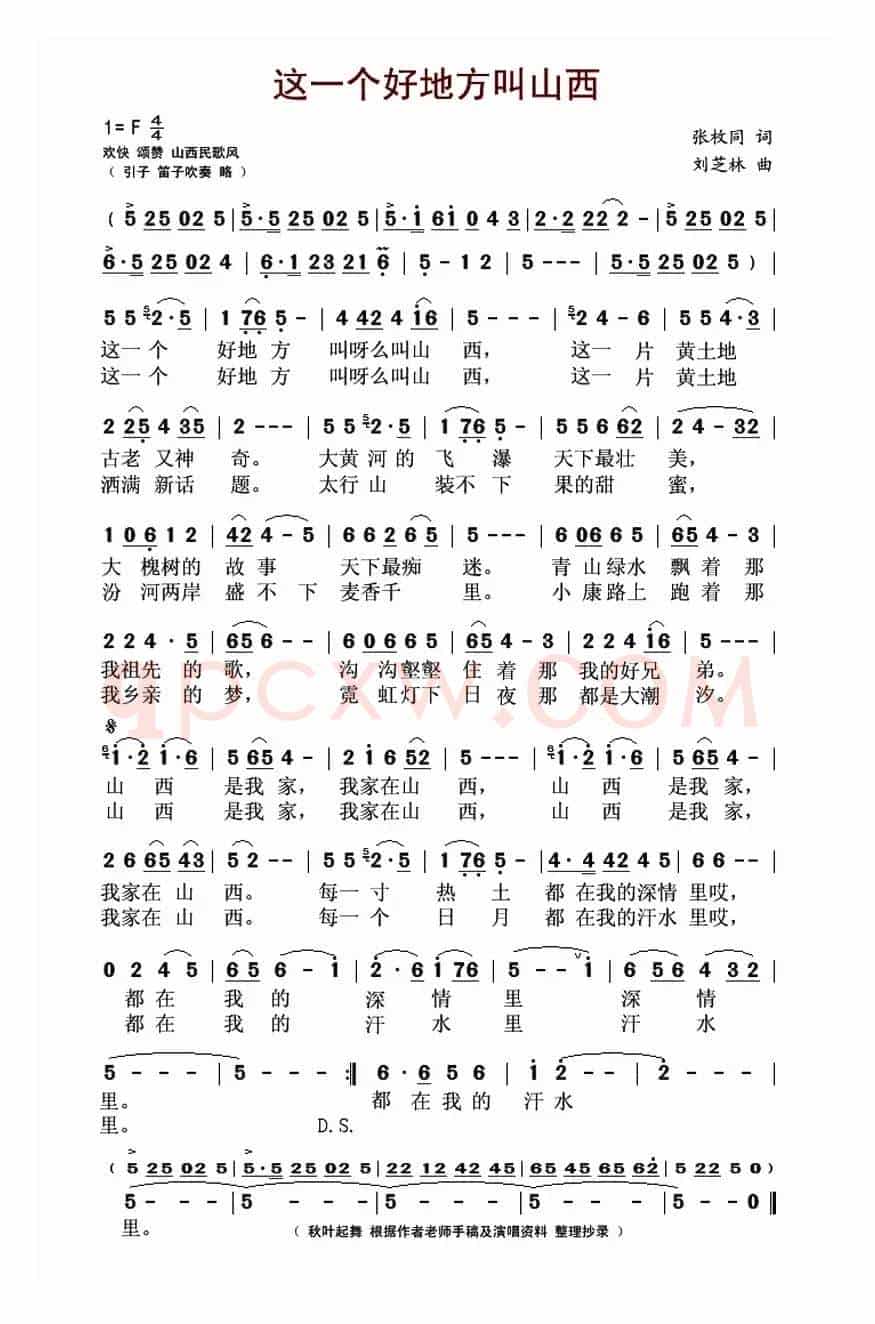 这一个好地方叫山西
1= F 4/4
张枚同 词
欢快 颂赞 山西民歌风
刘芝林 曲
( 引子 笛子吹奏 略 )
( 5 25 02 5 | 5·5 25 02 5 | 5·i 6i 0 4 3 | 2·2 22 2 - | 5 25 02 5 |
6·5 25 02 4 | 6·1 23 21 6 | 5 - 1 2 | 5 - - - | 5·5 25 02 5 ) |
5 5 5 2·5 | 1 76 5 - | 4 42 4 i6 | 5 - - - | 5 2 4 - 6 | 5 5 4·3 |
这一个 好地方 叫呀么叫山 西, 这一 片 黄土地
这一个 好地方 叫呀么叫山 西, 这一 片 黄土地
2 25 4 35 | 2 - - - | 5 5 5 2·5 | 1 76 5 - | 5 5 6 62 | 2 4 - 32 |
古老 又神 奇。 大黄河的 飞 瀑 天下最壮 美,
洒满 新话 题。 太行山 装不下 果的甜 蜜,
1 0 6 1 2 | 42 4 - 5 | 6 6 26 65 | 5 - - - | 6 06 6 5 | 65 4 - 3 |
大 槐树的 故 事 天下最痴 迷。 青山绿水 飘着那
汾 河两岸 盛不下 麦香千 里。 小康路上 跑着那
2 2 4 · 5 | 65 6 - - | 6 0 6 6 5 | 65 4 - 3 | 2 2 4 i6 | 5 - - - |
我祖先 的 歌, 沟 沟壑壑 住着那 我的好兄 弟。
我乡亲 的 梦, 霓 虹灯下 日夜那 都是大潮 汐。
qpcxw.com
6 i·2 i·6 | 5 65 4 - | 2 i 6 52 | 5 - - - | 6 i·2 i·6 | 5 65 4 - |
山 西 是我家, 我家在山 西, 山 西 是我家,
山 西 是我家, 我家在山 西, 山 西 是我家,
2 6 65 43 | 5 2 - - | 5 5 5 2·5 | 1 76 5 - | 4·4 42 4 5 | 6 6 - - |
我家在 山 西。 每一寸 热 土 都 在我的深情 里哎,
我家在 山 西。 每一个 日 月 都 在我的汗水 里哎,
0 2 4 5 | 65 6 - i | 2·6 i 76 | 5 - - i | 65 6 4 32 |
都在 我 的 深 情 里 深 情
都在 我 的 汗 水 里 汗 水
5 - - - | 5 - - - :‖ 6 · 6 5 6 | i 2 - - | 2 - - - |
里。 都 在我的 汗水
里。 D.S.
( 5 25 02 5 | 5·5 25 02 5 | 22 12 42 45 | 65 45 65 62 | 5 22 5 0 )
5 - - - | 5 - - - | 5 - - - | 5 - - - | 5 - - 0 ‖
里。 ( 秋叶起舞 根据作者老师手稿及演唱资料 整理抄录 )